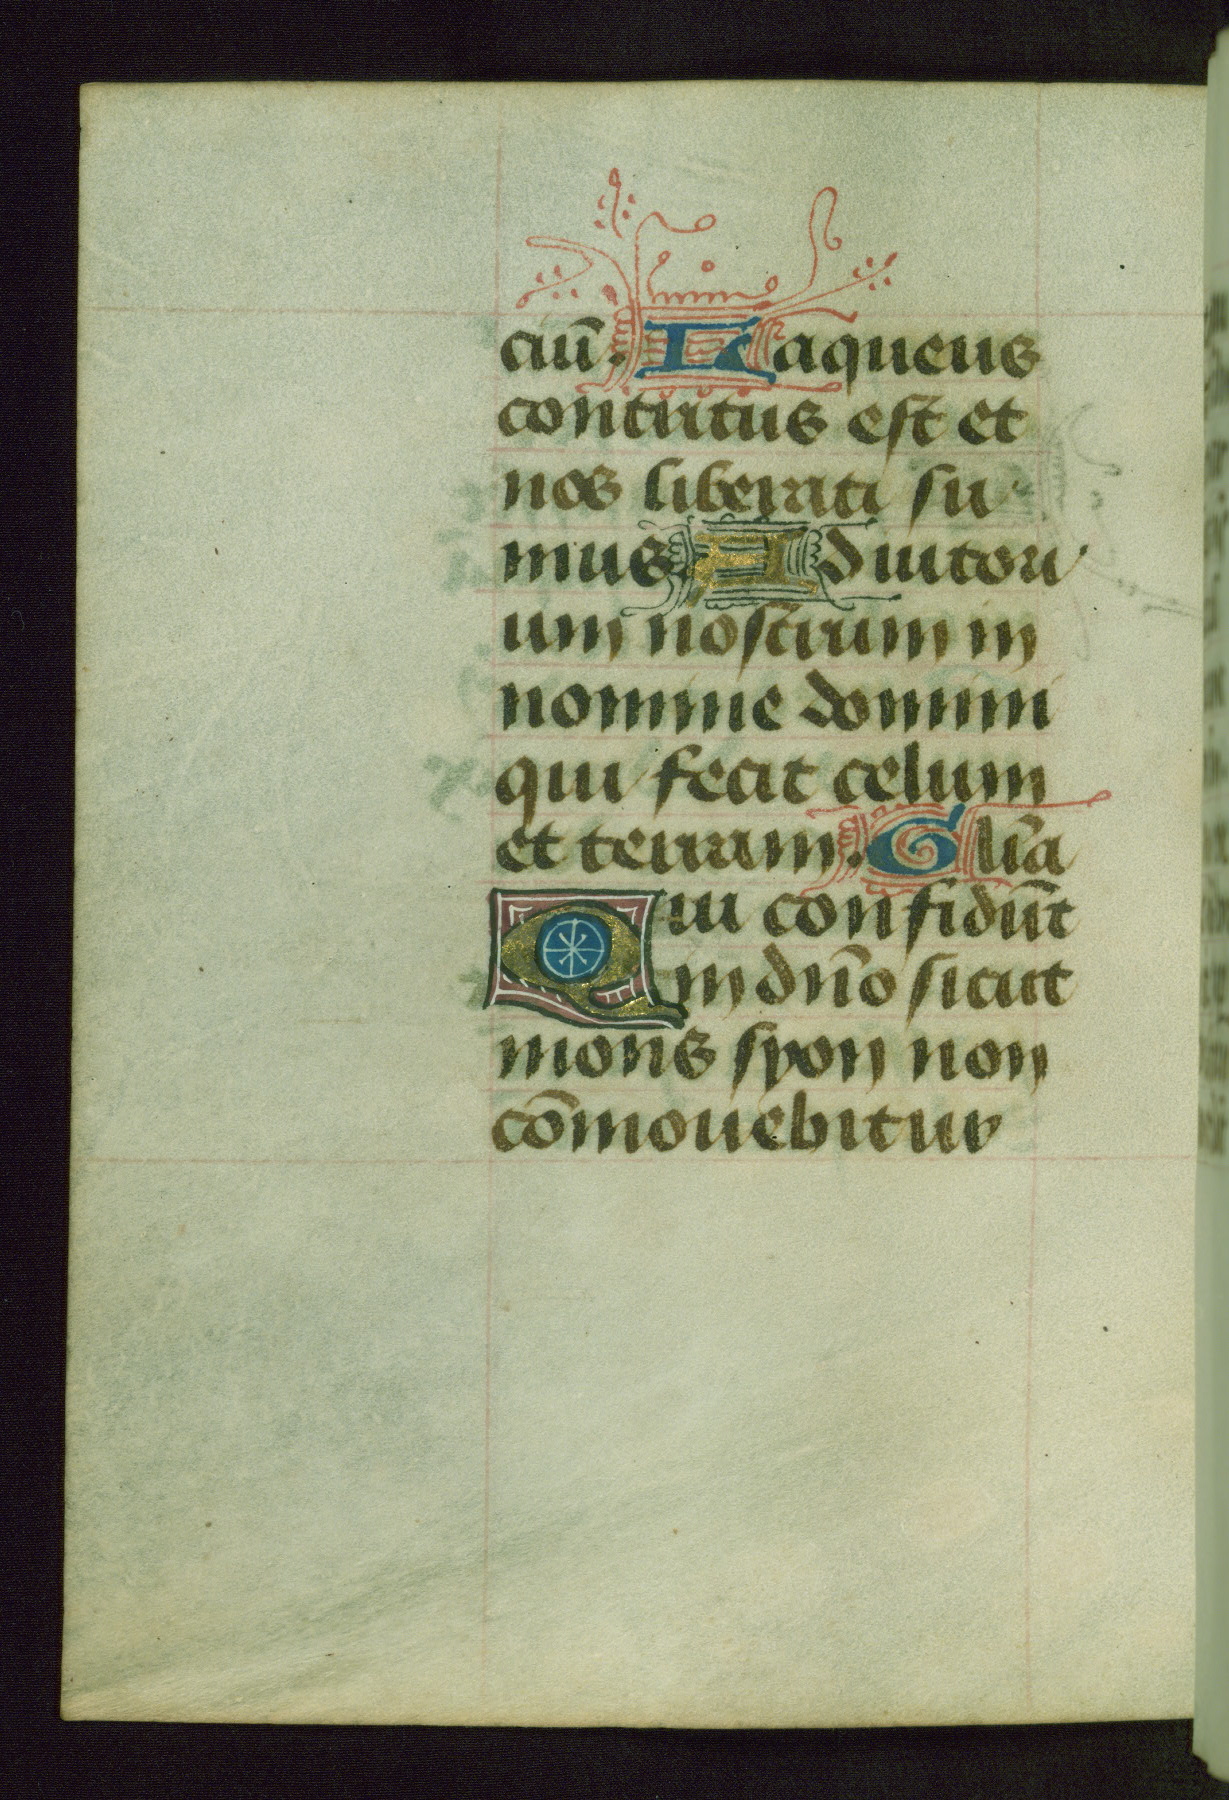 ciū. Laqueus
contritus est et
nos liberati su
mus. Adiutori
um nostrum in
nomine domini
qui fecit celum
et terram. Glīa
Qui confidūt
in dn̄o sicut
mons syon non
cōmouebitur